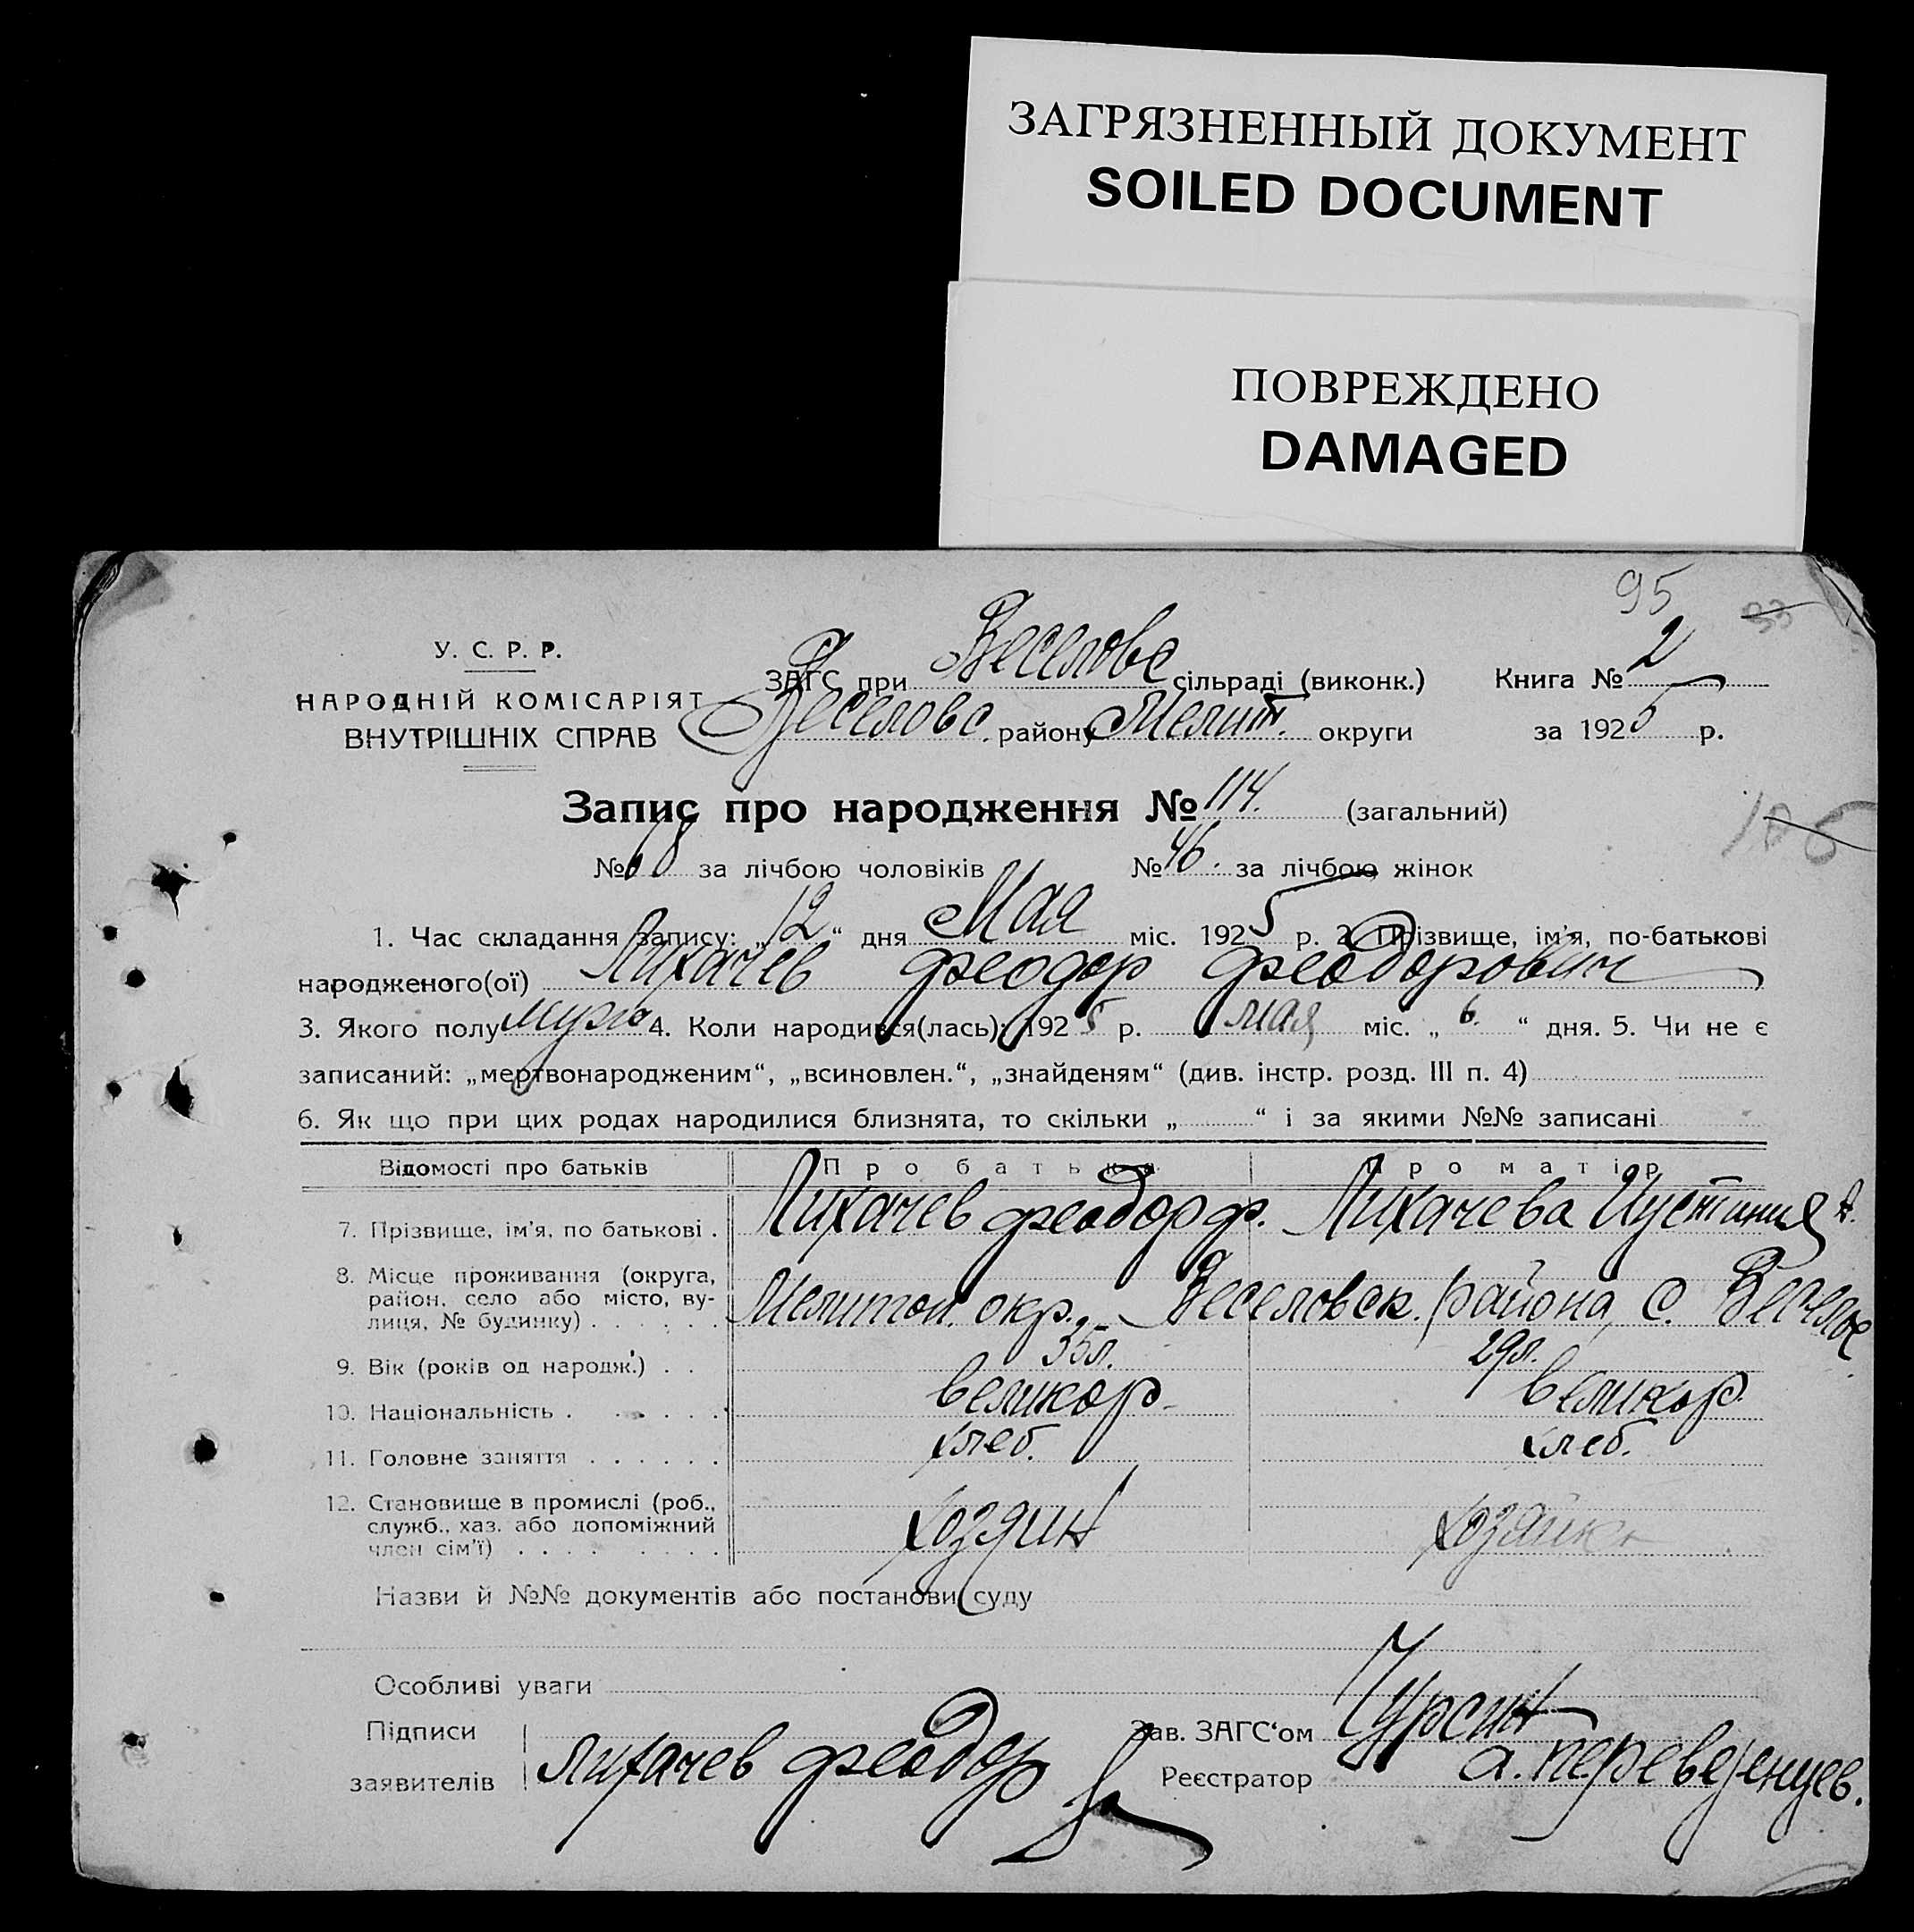 ЗАГРЯЗНЕННЫЙ ДОКУМЕНТ
SOILED DOCUMENT
ПОВРЕЖДЕНО
DAMAGED
95
33
У. С. Р. Р.
НАРОДНІЙ КОМІСАРІЯТ
ВНУТРІШНІХ СПРАВ
ЗАГС при Веселовс сільраді (виконк.) Книга № 2
Веселовс. району Мелит. округи за 1925 р.
Запис про народження № 114. (загальний)
№ 68 за лічбою чоловіків № 46. за лічбою жінок
1. Час складання запису: „12“ дня Мая міс. 1925 р. 2. Прізвище, ім’я, по-батькові
народженого(ої) Лихачев Феодор Феодорович
3. Якого полу муж 4. Коли народився(лась): 1925 р. мая міс. „6.“ дня. 5. Чи не є
записаний: „мертвонародженим“, „всиновлен.“, „знайденям“ (див. інстр. розд. III п. 4)
6. Як що при цих родах народилися близнята, то скільки „ “ і за якими №№ записані
Відомості про батьків Про батька Про матір
7. Прізвище, ім’я, по батькові . Лихачев Феодор Ф. Лихачева Иустиния А.
8. Місце проживання (округа, район, село або місто, вулиця, № будинку) . . . . . . Мелитоп. окр., Веселовск. района, С. Веселое
9. Вік (років од народж.) . . 35л. 29л.
10. Національність . . . . . . великор. великор.
11. Головне заняття . . . . . . хлеб. хлеб.
12. Становище в промислі (роб., служб., хаз. або допоміжний член сім’ї) . . . . . . . . хозяин хозяйка
Назви й №№ документів або постанови суду
Особливі уваги
Підписи заявителів Лихачев Феодор
Зав. ЗАГС‘ом Чурсин
Реєстратор А. Переверзенцев.